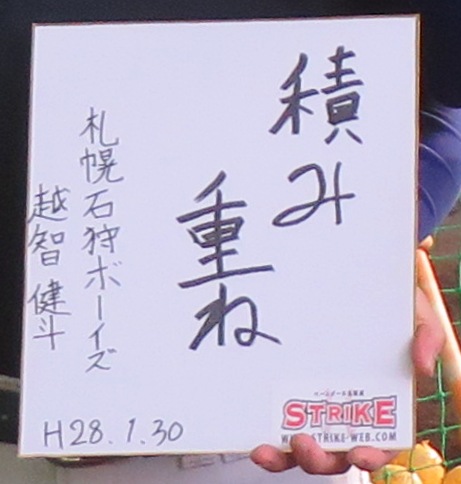 積み
重ね
札幌石狩ボーイズ
越智健斗
H28.1.30
ベースボール道場
STRIKE
WWW.STRIKE-WEB.COM